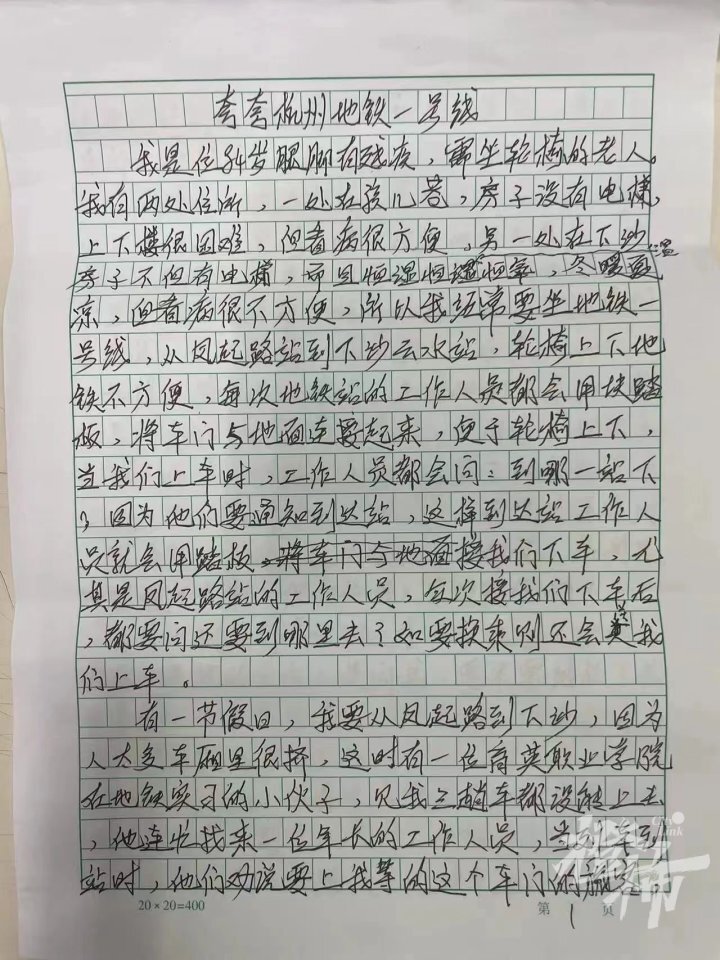 夸夸杭州地铁一号线
我是位84岁腿脚有残疾，需坐轮椅的老人。
我有两处住所，一处在孩儿巷，房子没有电梯，
上下楼很困难，但看病很方便，另一处在下沙
房子不但有电梯，而且恒湿恒温恒氧，冬暖夏
凉，但看病很不方便，所以我经常要坐地铁一
号线，从凤起路站到下沙云水站，轮椅上下地
铁不方便，每次地铁站的工作人员都会用块踏
板，将车门与地面连接起来，便于轮椅上下，
当我们上车时，工作人员都会问：到哪一站下
？因为他们要通知到达站，这样到达站工作人
员就会用踏板接我们下车，尤
其是凤起路站的工作人员，每次接我们下车后
，都要问还要到哪里去？如要换乘则还会送我
们上车。
有一节假日，我要从凤起路到下沙，因为
人太多车厢里很挤，这时有一位育英职业学院
在地铁实习的小伙子，见我三趟车都没能上去
，他连忙找来一位年长的工作人员，当列车到
站时，他们劝说要上我等的这个车门的旅客
20×20=400
第 1 页
City Link
橙柿